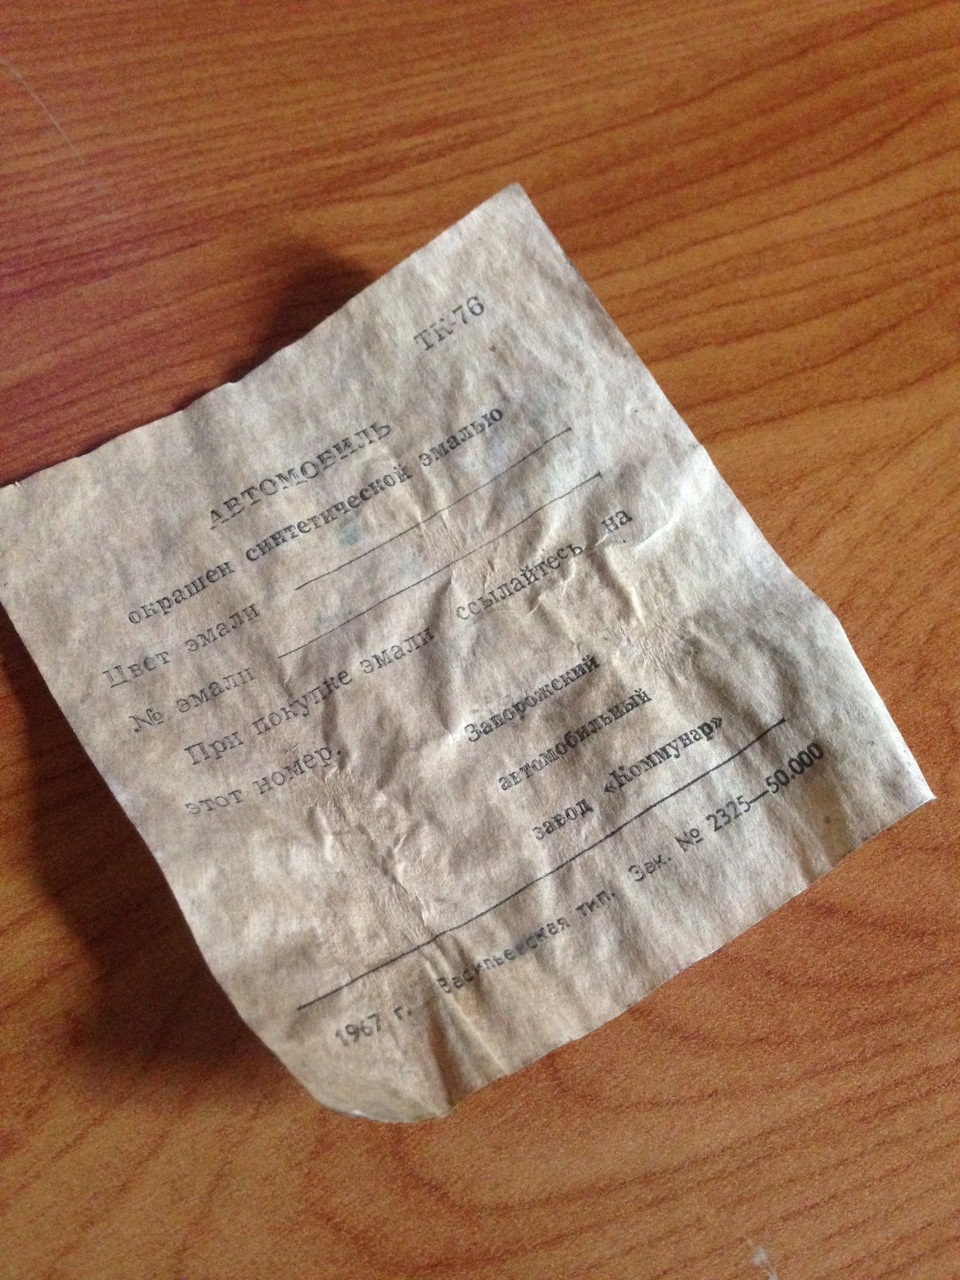 ТК-76
АВТОМОБИЛЬ
окрашен синтетической эмалью
Цвет эмали
№ эмали
При покупке эмали ссылайтесь на
этот номер.
Запорожский
автомобильный
завод «Коммунар»
1967 г. Васильевская тип. Зак. № 2325—50.000